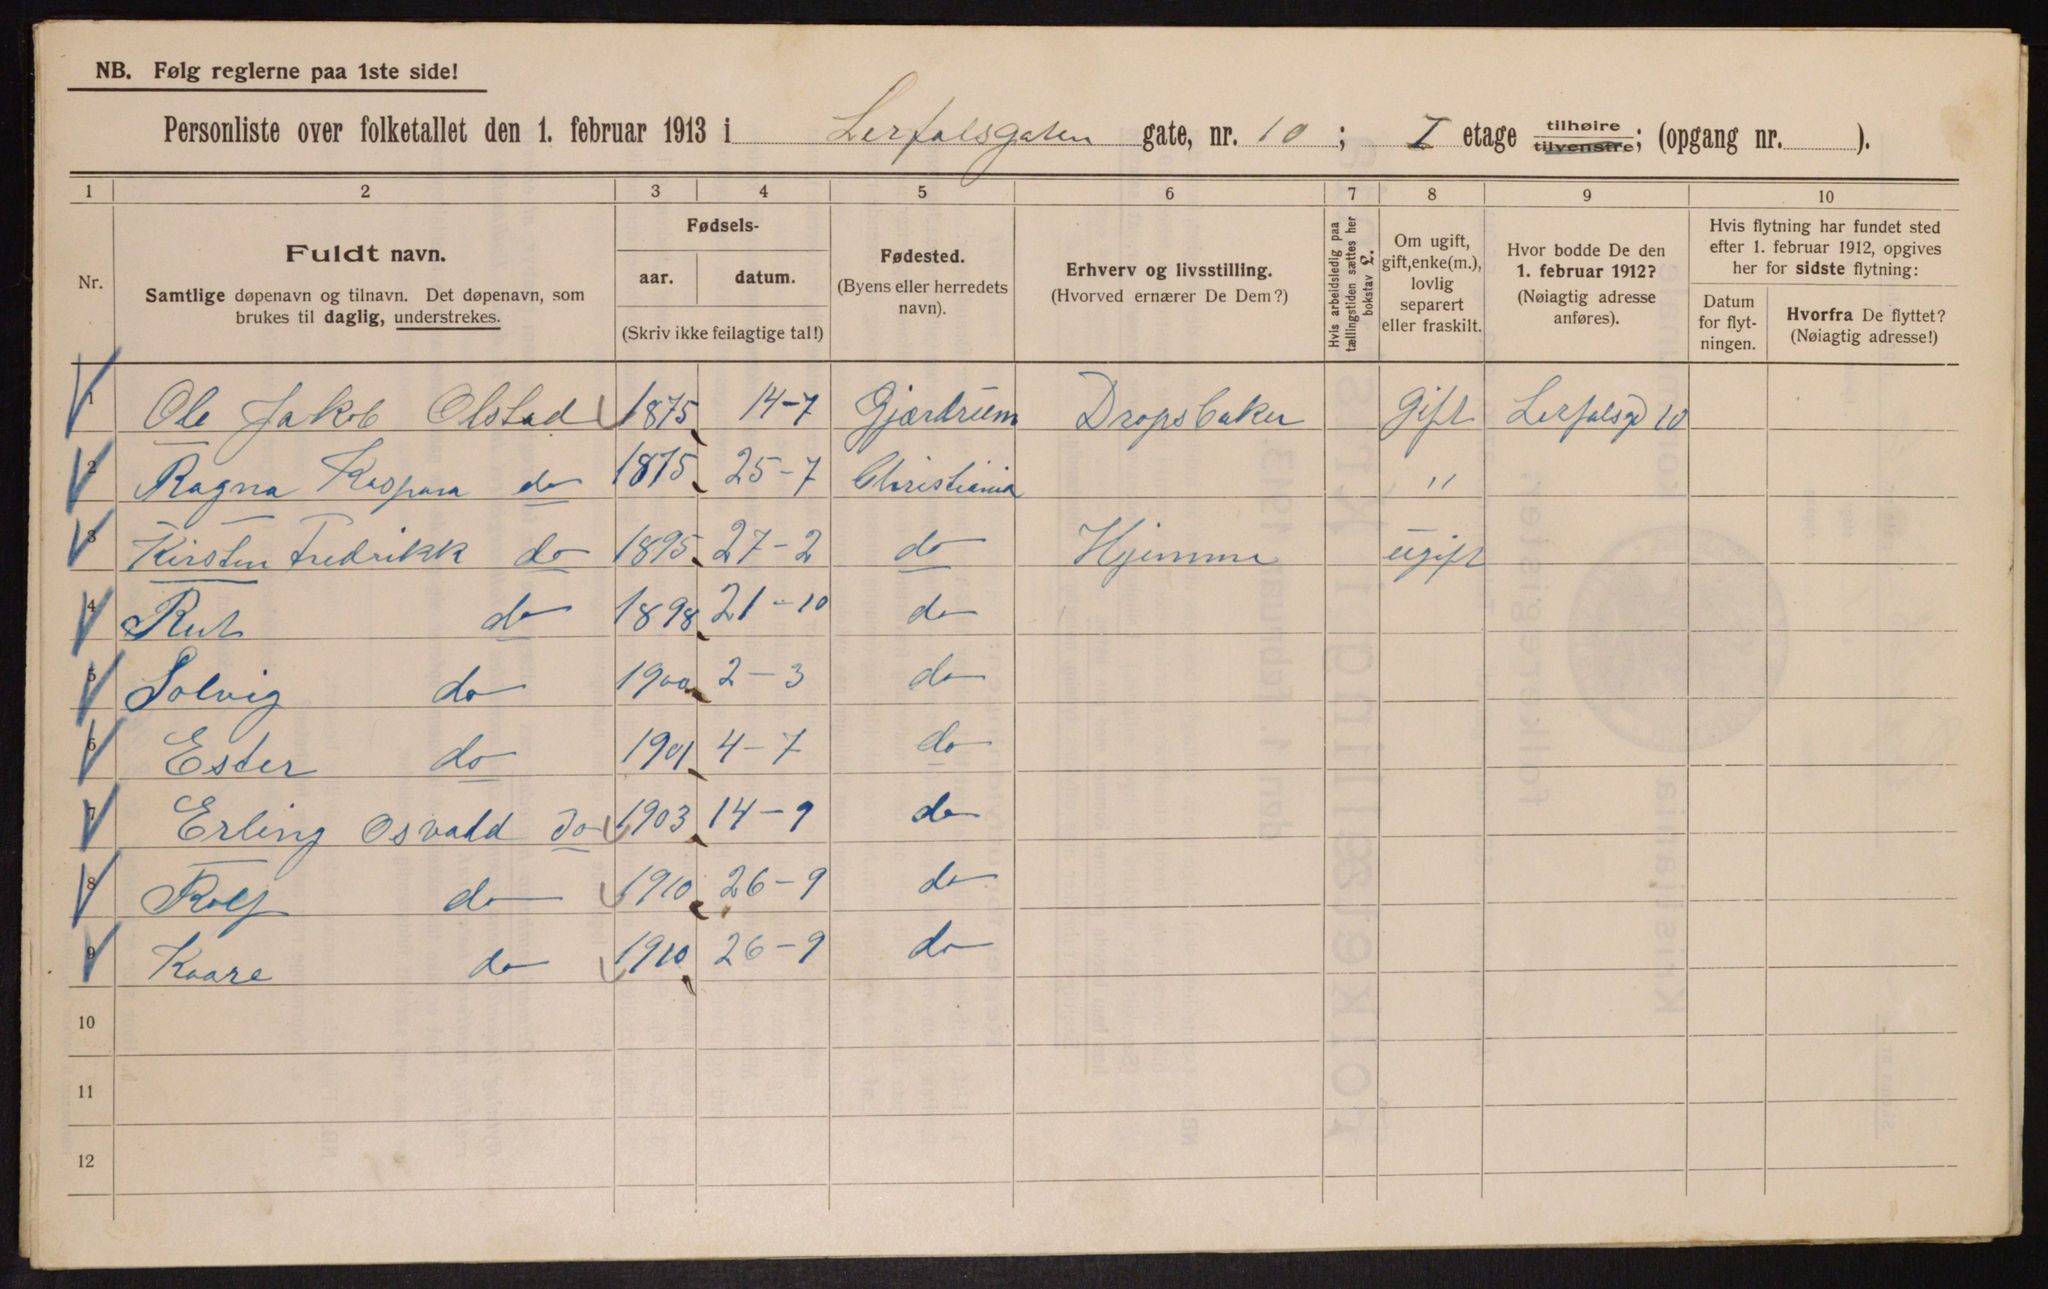 NB. Følg reglerne paa 1ste side!
Personliste over folketallet den 1. februar 1913 i Lerfalsgaten gate, nr. 10; I etage tilhøire tilvenstre; (opgang nr. ).
1 2 3 4 5 6 7 8 9 10
Nr.
Fuldt navn.
Samtlige døpenavn og tilnavn. Det døpenavn, som
brukes til daglig, understrekes.
Fødsels-
aar. datum.
(Skriv ikke feilagtige tal!)
Fødested.
(Byens eller herredets
navn).
Erhverv og livsstilling.
(Hvorved ernærer De Dem?)
Hvis arbeidsledig paa
tællingstiden sættes her
bokstav L.
Om ugift,
gift, enke(m.),
lovlig
separert
eller fraskilt.
Hvor bodde De den
1. februar 1912?
(Nøiagtig adresse
anføres).
Hvis flytning har fundet sted
efter 1. februar 1912, opgives
her for sidste flytning:
Datum
for flyt-
ningen.
Hvorfra De flyttet?
(Nøiagtig adresse!)
1 Ole Jakob Olstad 1875 14-7 Gjærdrum Dropsbaker gift Lerfalsg 10
2 Ragna Kaspara do 1875 25-7 Christiania "
3 Kirsten Fredrikk do 1895 27-2 do Hjemme ugift
4 Rut do 1898 21-10 do
5 Solvig do 1900 2-3 do
6 Ester do 1901 4-7 do
7 Erling Osvald do 1903 14-9 do
8 Rolf do 1910 26-9 do
9 Kaare do 1910 26-9 do
10
11
12